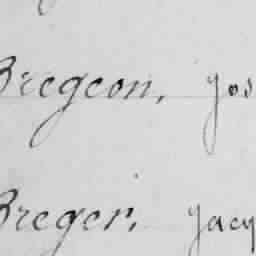 Bregeon, Jos
Breger, Jacq